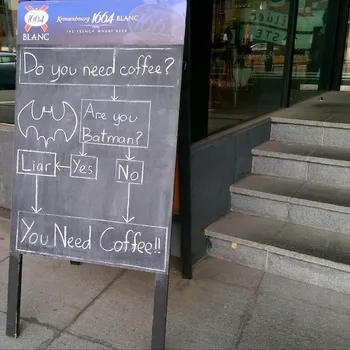 1664
BLANC
Kronenbourg 1664 BLANC
THE FRENCH WHEAT BEER
Do you need coffee?
Are you
Batman?
Liar
Yes
No
You Need Coffee!!